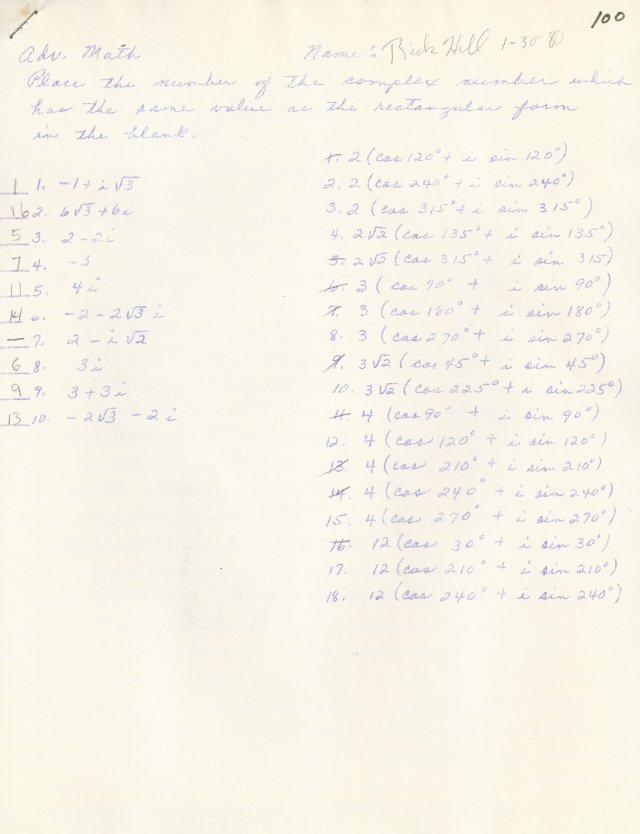 100
Adv. Math Name: Rick Hill 1-30-80
Place the number of the complex number which
has the same value as the rectangular form
in the blank.
1 1. -1 + i √3
16 2. 6√3 + 6i
5 3. 2 - 2i
7 4. -3
11 5. 4i
14 6. -2 - 2√3 i
— 7. 2 - i √2
6 8. 3i
9 9. 3 + 3i
13 10. -2√3 - 2i
1. 2 (cos 120° + i sin 120°)
2. 2 (cos 240° + i sin 240°)
3. 2 (cos 315° + i sin 315°)
4. 2√2 (cos 135° + i sin 135°)
5. 2√2 (cos 315° + i sin 315)
6. 3 (cos 90° + i sin 90°)
7. 3 (cos 180° + i sin 180°)
8. 3 (cos 270° + i sin 270°)
9. 3√2 (cos 45° + i sin 45°)
10. 3√2 (cos 225° + i sin 225°)
11. 4 (cos 90° + i sin 90°)
12. 4 (cos 120° + i sin 120°)
13. 4 (cos 210° + i sin 210°)
14. 4 (cos 240° + i sin 240°)
15. 4 (cos 270° + i sin 270°)
16. 12 (cos 30° + i sin 30°)
17. 12 (cos 210° + i sin 210°)
18. 12 (cos 240° + i sin 240°)